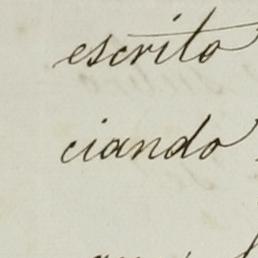 escrito
ciando